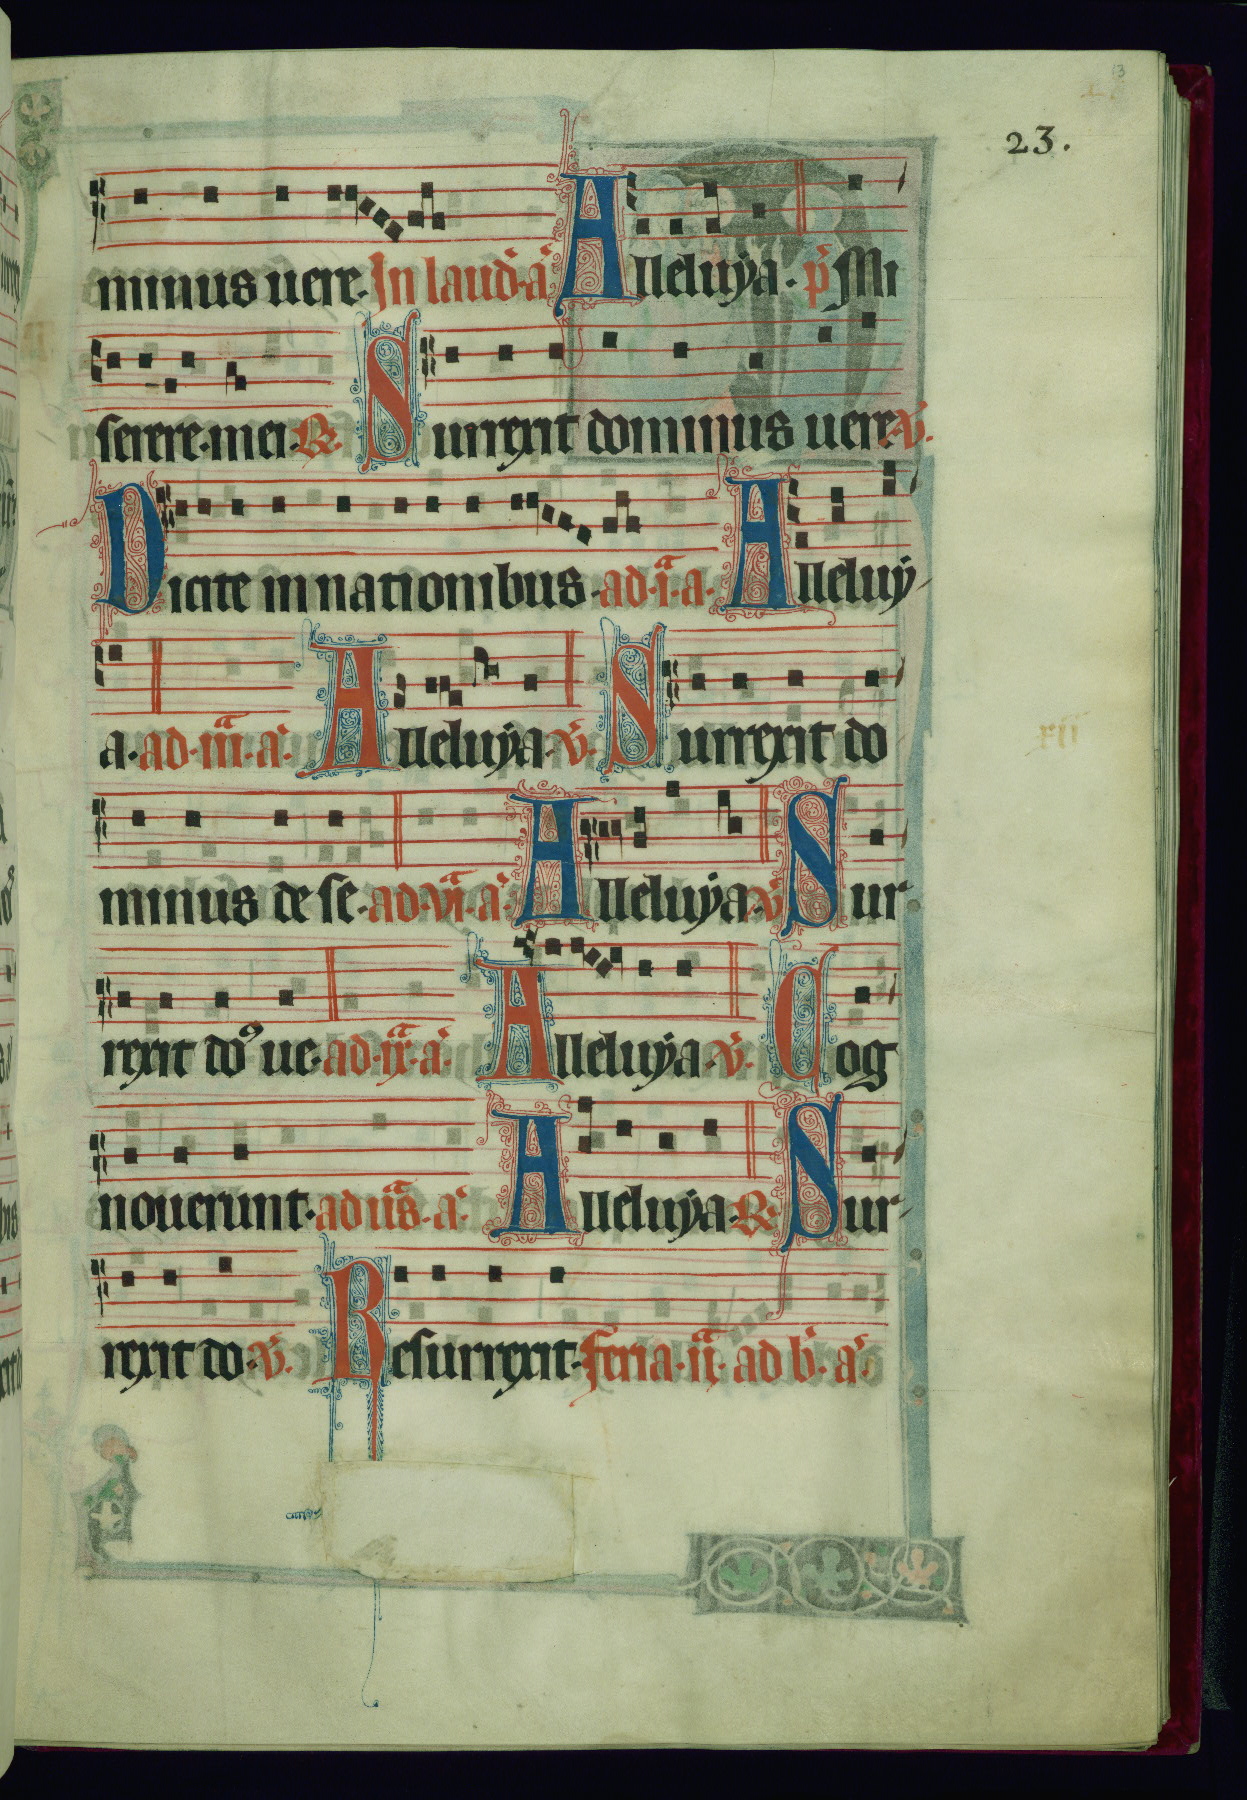 23.
minus uere. In laud̄. a̾ Alleluýa. p̾s Mi
serere mei. ℟. Surrexit dominus uere. ℣.
Dicite in nationibus. ad. i.ᵃ a. Alleluý
a. ad. iii.ᵃ a. Alleluýa. ℣. Surrexit do
minus de se. ad. vi.ᵃ a. Alleluýa. ℣. Sur
rexit do᷒ ue. ad. ix.ᵃ a. Alleluýa. ℣. Cog
nouerunt. ad uās. a. Alleluýa. ℟. Sur-
rexit do. ℣. Resurrexit. feria. ii.ᵃ ad b. a.